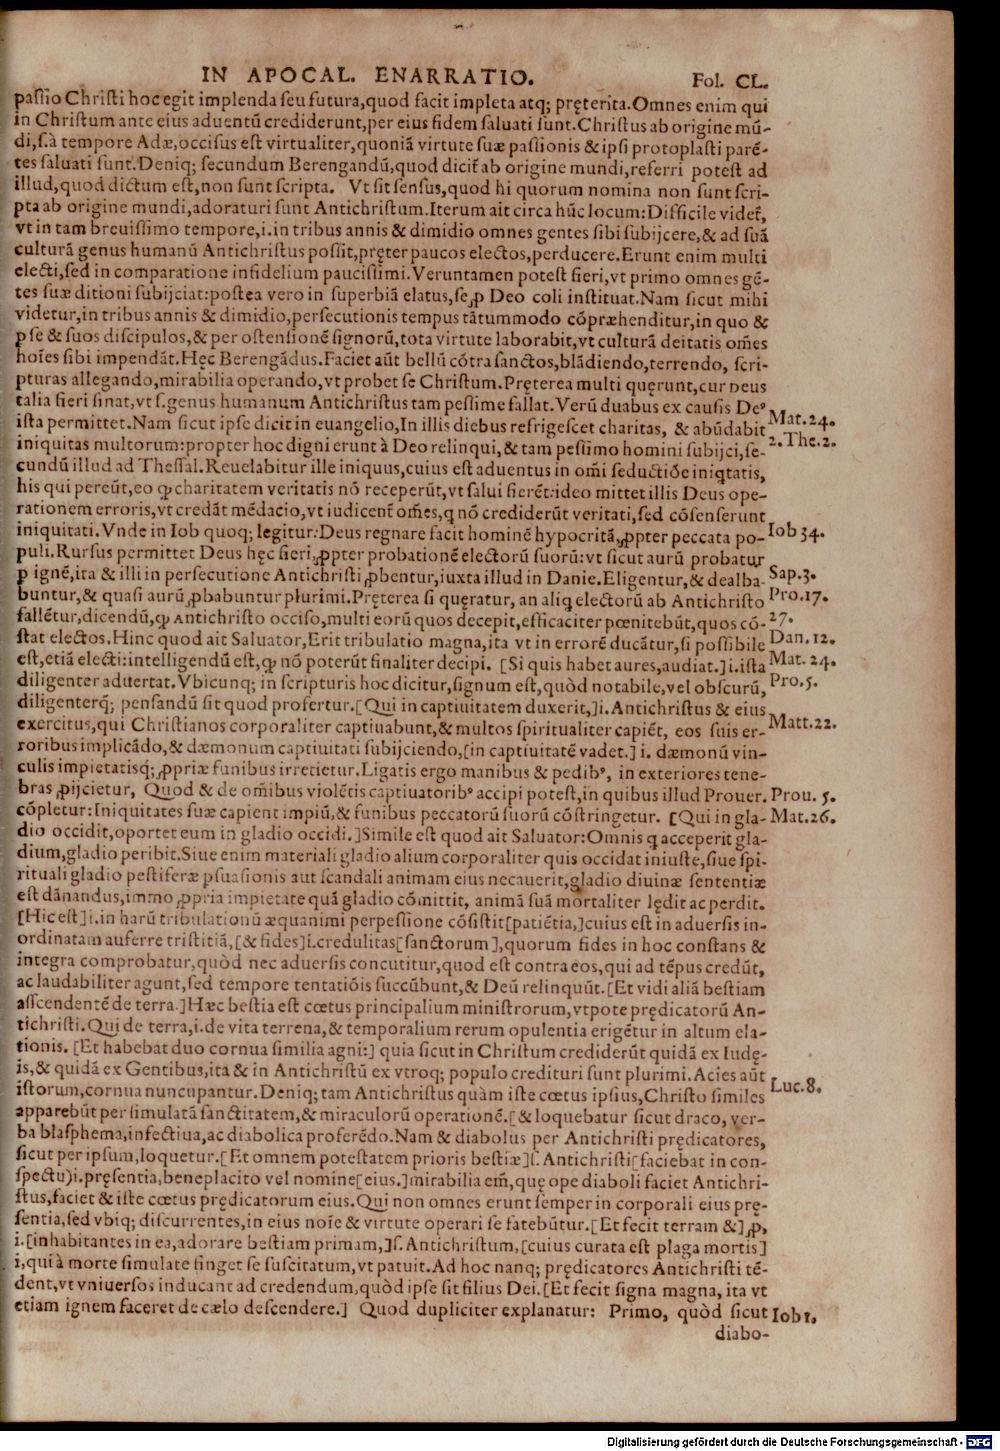 IN APOCAL. ENARRATIO. Fol. CL.
passio Christi hoc egit implenda seu futura,quod facit impleta atq; pręterita.Omnes enim qui
in Christum ante eius aduentū crediderunt,per eius fidem saluati sunt.Christus ab origine mū-
di,s.à tempore Adæ,occisus est virtualiter,quoniā virtute suæ passionis & ipsi protoplasti parē-
tes saluati sunt.Deniq; secundum Berengandū,quod dicit̃ ab origine mundi,referri potest ad
illud,quod dictum est,non sunt scripta. Vt sit sensus,quod hi quorum nomina non sunt scri-
pta ab origine mundi,adoraturi sunt Antichristum.Iterum ait circa hūc locum:Difficile videt̃,
vt in tam breuissimo tempore,i.in tribus annis & dimidio omnes gentes sibi subijcere,& ad suā
culturā genus humanū Antichristus possit,pręter paucos electos,perducere.Erunt enim multi
electi,sed in comparatione infidelium paucissimi.Veruntamen potest fieri,vt primo omnes gē-
tes suæ ditioni subijciat:postea vero in superbiā elatus,se ꝓ Deo coli instituat.Nam sicut mihi
videtur,in tribus annis & dimidio,persecutionis tempus tātummodo cōpræhenditur,in quo &
ꝑ se & suos discipulos,& per ostensionē signorū,tota virtute laborabit,vt culturā deitatis om̄es
hoīes sibi impendāt.Hęc Berengādus.Faciet aūt bellū cōtra sanctos,blādiendo,terrendo, scri-
pturas allegando,mirabilia operando,vt probet se Christum.Pręterea multi quęrunt,cur Deus
talia fieri sinat,vt s.genus humanum Antichristus tam pessime fallat.Verū duabus ex causis Deꝰ
ista permittet.Nam sicut ipse dicit in euangelio,In illis diebus refrigescet charitas, & abūdabit Mat.24.
iniquitas multorum:propter hoc digni erunt à Deo relinqui,& tam pessimo homini subijci,se- 2.The.2.
cundū illud ad Thessal.Reuelabitur ille iniquus,cuius est aduentus in om̄i seductiōe iniqtatis,
his qui pereūt,eo ꝙ charitatem veritatis nō receperūt,vt salui fierēt:ideo mittet illis Deus ope-
rationem erroris,vt credāt mēdacio,vt iudicent̃ om̄es,q nō crediderūt veritati,sed cōsenserunt
iniquitati.Vnde in Iob quoq; legitur:Deus regnare facit hominē hypocritā,ꝓpter peccata po- Iob 34.
puli.Rursus permittet Deus hęc fieri,ꝓpter probationē electorū suorū:vt sicut aurū probatur
ꝑ ignē,ita & illi in persecutione Antichristi ꝓbentur,iuxta illud in Danie.Eligentur,& dealba- Sap.3.
buntur,& quasi aurū ꝓbabuntur plurimi.Pręterea si quęratur, an aliq electorū ab Antichristo Pro.17.
fallētur,dicendū,ꝙ Antichristo occiso,multi eorū quos decepit,efficaciter pœnitebūt,quos cō- 27.
stat electos.Hinc quod ait Saluator,Erit tribulatio magna,ita vt in errorē ducātur,si possibile Dan.12.
est,etiā electi:intelligendū est,ꝙ nō poterūt finaliter decipi. [Si quis habet aures,audiat.]i.ista Mat.24.
diligenter aduertat.Vbicunq; in scripturis hoc dicitur,signum est,quòd notabile,vel obscurū, Pro.5.
diligenterq; pensandū sit quod profertur.[Qui in captiuitatem duxerit,]i.Antichristus & eius
exercitus,qui Christianos corporaliter captiuabunt,& multos spiritualiter capiēt, eos suis er- Matt.22.
roribus implicādo,& dæmonum captiuitati subijciendo,[in captiuitatē vadet.] i. dæmonū vin-
culis impietatisq; ꝓpriæ funibus irretietur.Ligatis ergo manibus & pedibꝰ, in exteriores tene-
bras ꝓijcietur, Quod & de om̄ibus violētis captiuatoribꝰ accipi potest,in quibus illud Prouer. Prou. 5.
cōpletur:Iniquitates suæ capient impiū,& funibus peccatorū suorū cōstringetur. [Qui in gla- Mat.26.
dio occidit,oportet eum in gladio occidi.]Simile est quod ait Saluator:Omnis q acceperit gla-
dium,gladio peribit.Siue enim materiali gladio alium corporaliter quis occidat iniuste,siue spi-
rituali gladio pestiferæ ꝑsuasionis aut scandali animam eius necauerit,gladio diuinæ sententiæ
est dānandus,immo ꝓpria impietate quā gladio cōmittit, animā suā mortaliter lędit ac perdit.
[Hic est]i.in harū tribulationū æquanimi perpessione cōsistit[patiētia,]cuius est in aduersis in-
ordinatam auferre tristitiā,[& fides]i.credulitas[sanctorum],quorum fides in hoc constans &
integra comprobatur,quòd nec aduersis concutitur,quod est contra eos,qui ad tēpus credūt,
ac laudabiliter agunt,sed tempore tentatiōis succūbunt,& Deū relinquūt.[Et vidi aliā bestiam
ascendentē de terra.]Hæc bestia est cœtus principalium ministrorum,vtpote prędicatorū An-
tichristi.Qui de terra,i.de vita terrena,& temporalium rerum opulentia erigētur in altum ela-
tionis. [Et habebat duo cornua similia agni:] quia sicut in Christum crediderūt quidā ex Iudę-
is,& quidā ex Gentibus,ita & in Antichristū ex vtroq; populo credituri sunt plurimi.Acies aūt
istorum,cornua nuncupantur.Deniq; tam Antichristus quàm iste cœtus ipsius,Christo similes Luc.8.
apparebūt per simulatā sanctitatem,& miraculorū operationē.[& loquebatur sicut draco, ver-
ba blasphema,infectiua,ac diabolica proferēdo.Nam & diabolus per Antichristi prędicatores,
sicut per ipsum,loquetur.[Et omnem potestatem prioris bestiæ]s. Antichristi[faciebat in con-
spectu)i.pręsentia,beneplacito vel nomine[eius.]mirabilia em̄,quę ope diaboli faciet Antichri-
stus,faciet & iste cœtus prędicatorum eius.Qui non omnes erunt semper in corporali eius prę-
sentia,sed vbiq; discurrentes,in eius noīe & virtute operari se fatebūtur.[Et fecit terram &]ꝓ,
i.[inhabitantes in ea,adorare bestiam primam,]s. Antichristum,[cuius curata est plaga mortis]
i,qui à morte simulate finget se suscitatum,vt patuit.Ad hoc nanq; prędicatores Antichristi tē-
dent,vt vniuersos inducant ad credendum,quòd ipse sit filius Dei.[Et fecit signa magna, ita vt
etiam ignem faceret de cælo descendere.] Quod dupliciter explanatur: Primo, quòd sicut Iob 1,
diabo-
Digitalisierung gefördert durch die Deutsche Forschungsgemeinschaft - DFG